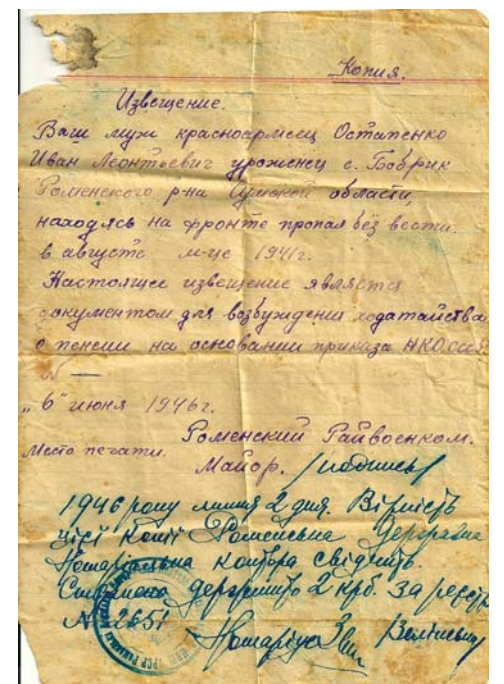 Копия.
Извещение.
Ваш муж красноармеец Остапенко
Иван Леонтьевич уроженец с. Бобрик
Роменского р-на Сумской области,
находясь на фронте пропал без вести
в августе м-це 1941г.
Настоящее извещение является
документом для возбуждения ходатайства
о пенсии на основании приказа НКО СССР
№ —
"6" июня 1946г.
Роменский Райвоенком.
Место печати.
Майор. /подпись/
1946 року липня 2 дня. Вірність
цієї копії Роменська Державна
Нотаріальна контора свідчить.
Стягнено держмито 2 крб. За реєстр
№ 2651
Нотаріус